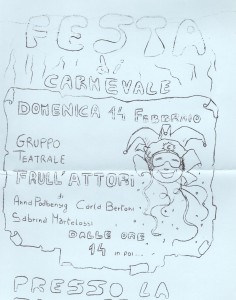 FESTA
di
CARNEVALE
DOMENICA 14 FEBBRAIO
GRUPPO
TEATRALE
FRULL'ATTORI
di
Anna Podbersig Carla Bertoni
Sabrina Martelossi
DALLE ORE
14 in poi...
PRESSO LA